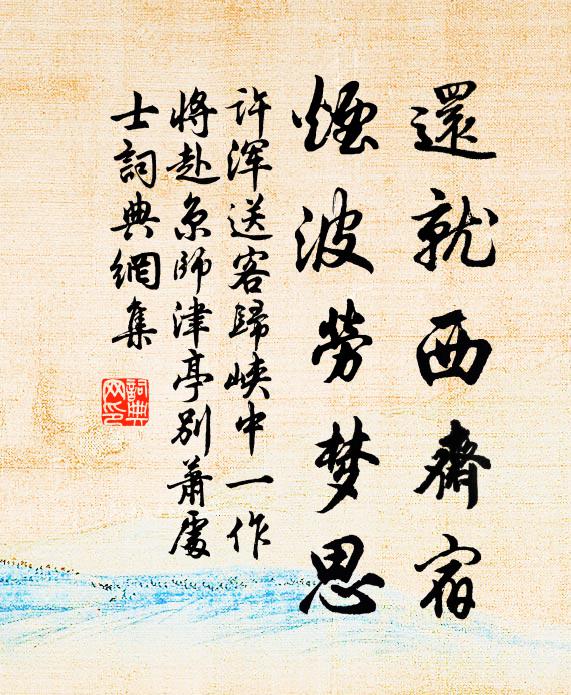 還就西齋宿
煙波勞梦思
许浑送客歸峽中一作
将赴京師津亭别蕭處
士詞典網集
詞典
网印